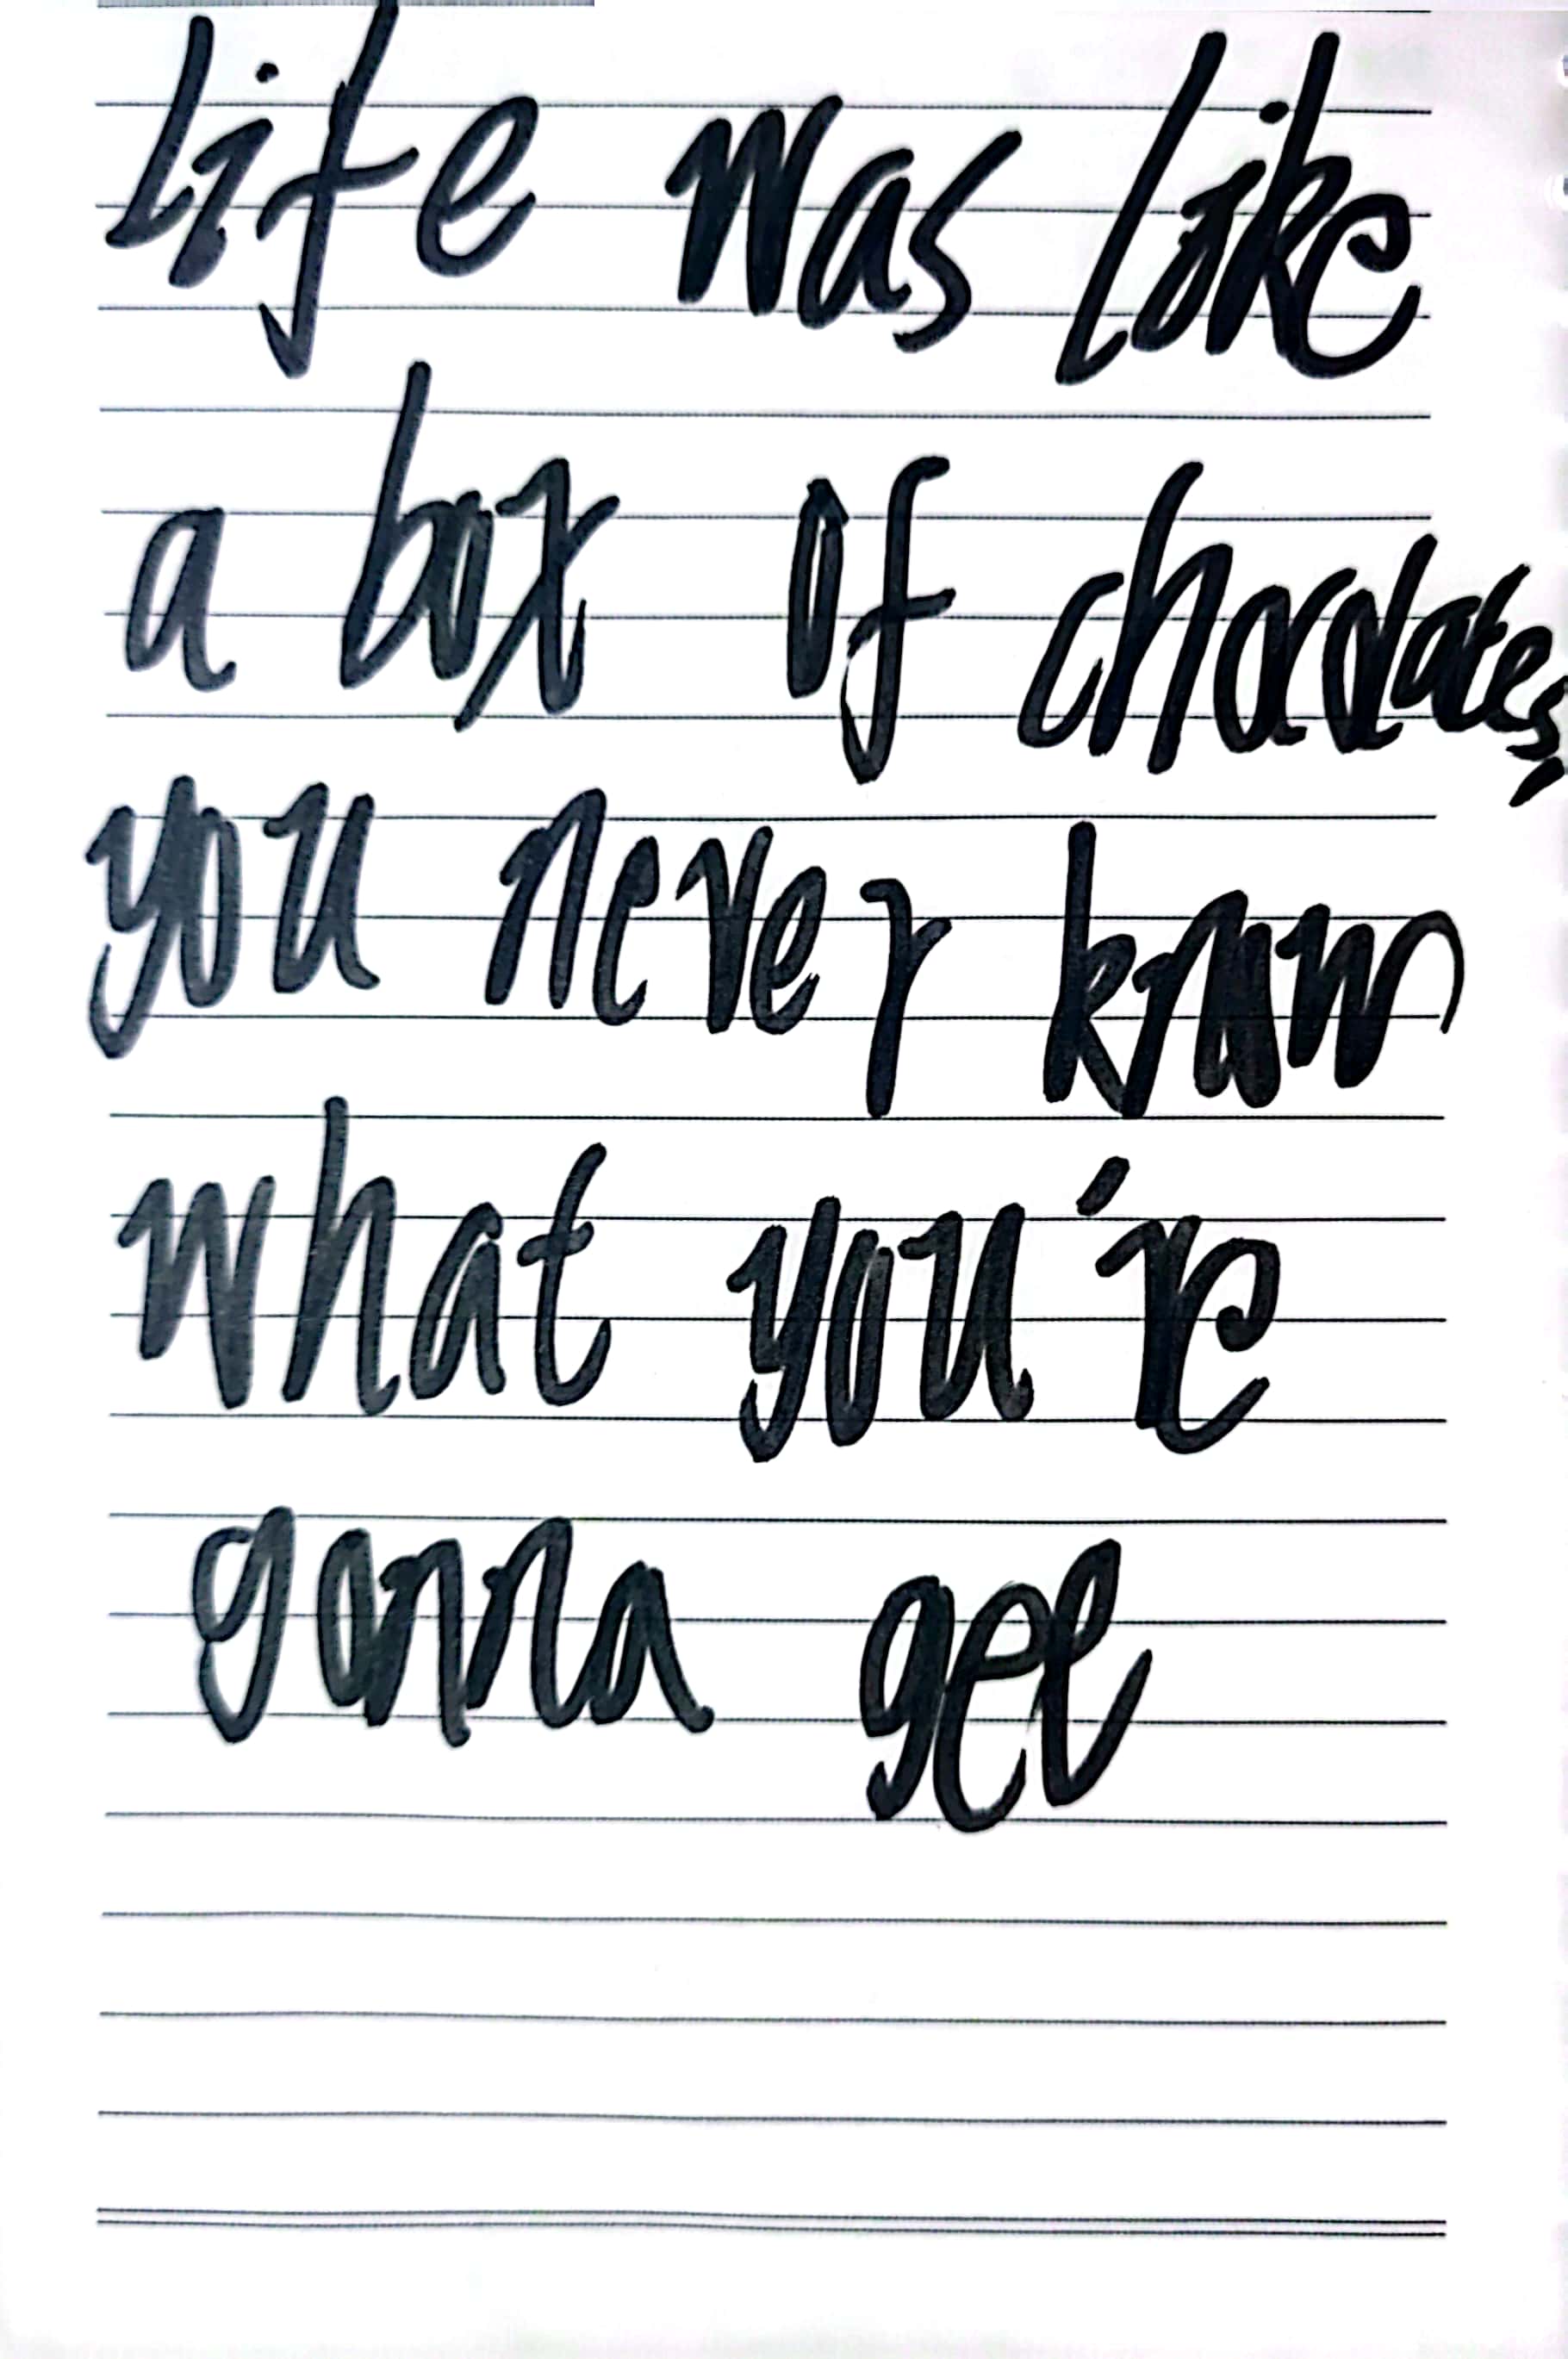 Life was like
a box of chocolates,
you never know
what you're
gonna get